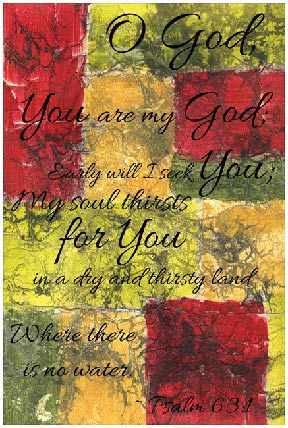 O God,
You are my God;
Early will I seek You;
My soul thirsts
for You
in a dry and thirsty land
Where there
is no water
~ Psalm 63:1